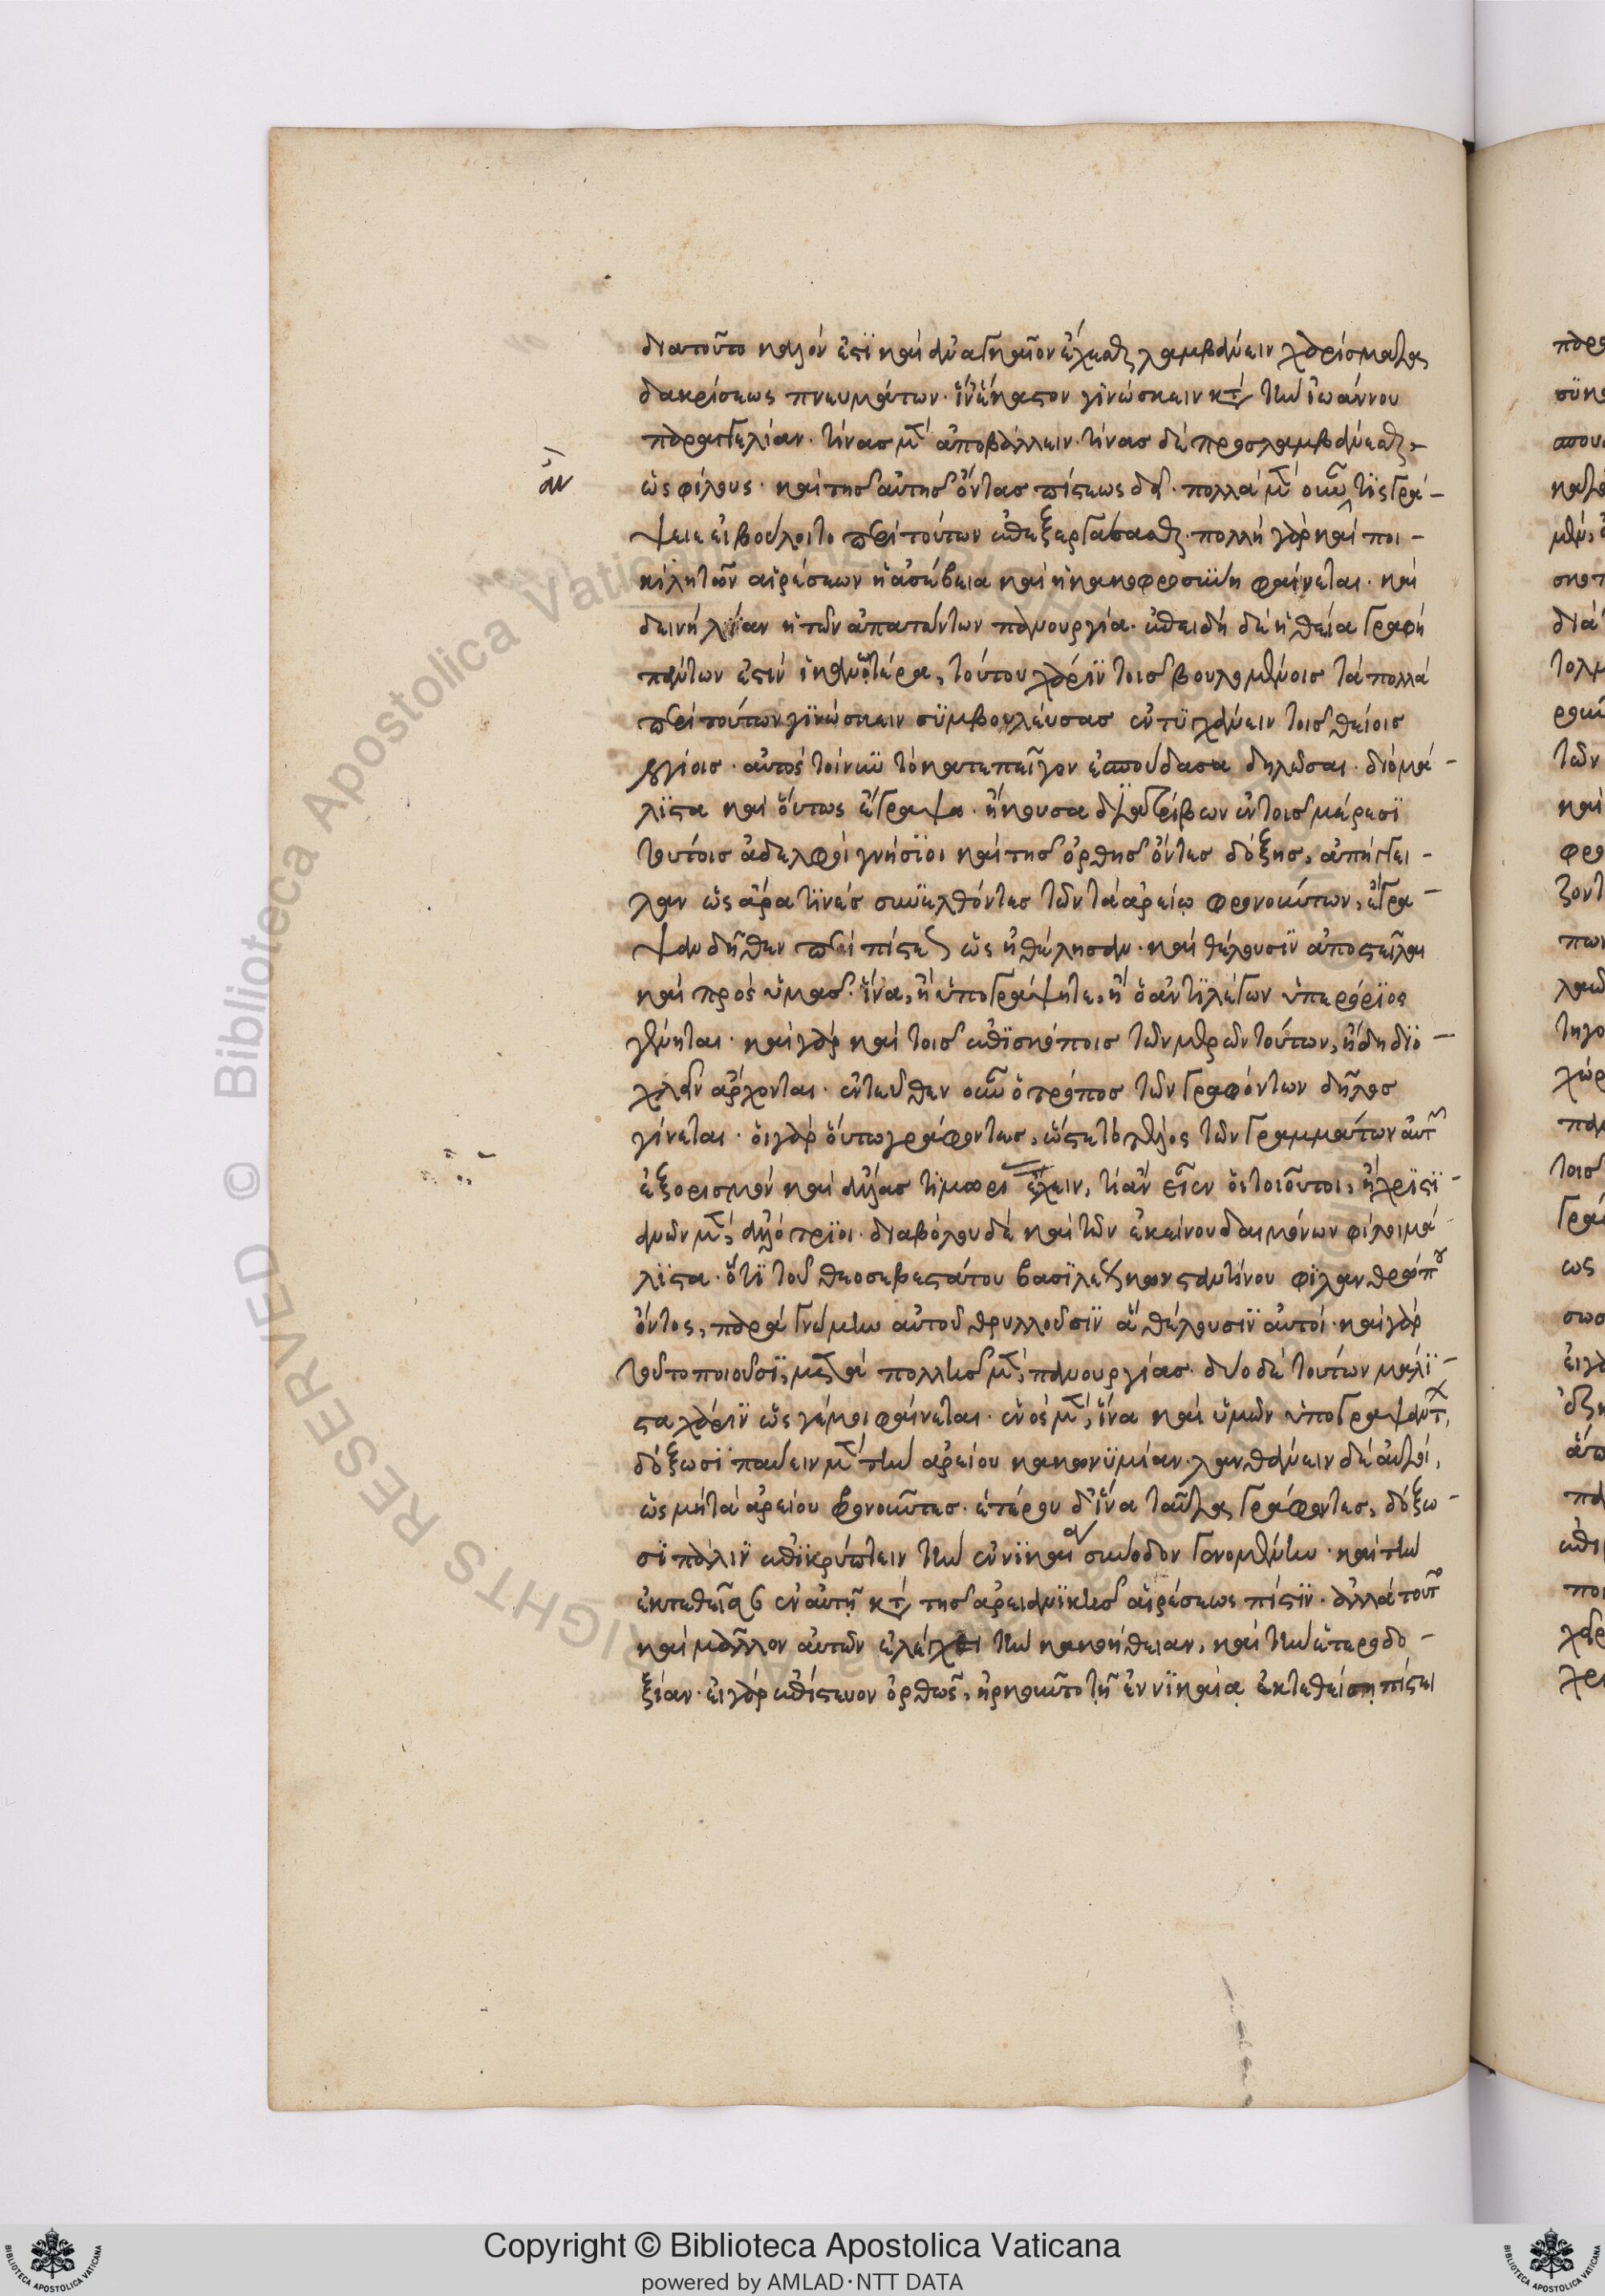 διατοῦτο καλόν ἐστὶ καὶ ἀναγκαῖον εὔχεσθαι λαμβάνειν χάρισμα τῆς
διακρίσεως πνευμάτων. ἵν ἕκαστον γινώσκειν κατὰ τὴν ἰωάννου
παραγγελίαν. τίνας μὲν ἀποβάλλειν. τίνας δὲ προσλαμβάνεσθαι
ἄν
ὡς φίλους. καὶ τῆς αὐτῆς ὄντας πίστεως δεῖ. πολλὰ μὲν οὖν τὶς γρά-
ψειε εἰ βούλοιτο περὶ τούτων ἐπεξεργάσασθαι. πολλὴ γὰρ καὶ ποι-
κίλη τῶν αἱρέσεων ἡ ἀσέβεια καὶ ἡ κακοφροσύνη φαίνεται. καὶ
δεινὴ λίαν ἡ τῶν ἀπατώντων πανουργία. ἐπειδὴ δὲ ἡ θεία γραφὴ
πάντων ἐστὶν ἱκανωτέρα, τούτου χάριν τοῖς βουλομένοις τὰ πολλὰ
περὶ τούτων γινώσκειν συμβουλεύσας ἐντυγχάνειν τοῖς θείοις
λογίοις. αὐτὸς τοίνυν τὸ κατεπεῖγον ἐσπούδασα δηλῶσαι. διὸ μά-
λιστα καὶ οὕτως ἔγραψα. ἤκουσα διατρίβων ἐν τοῖς μέρεσι
τούτοις ἀδελφοὶ γνήσιοι καὶ τῆς ὀρθῆς ὄντες δόξης, ἀπήγγει-
λαν ὡς ἄρα τινὲς συνελθόντες τῶν τὰ ἀρείῳ φρονούντων, ἔγρα-
ψαν δῆθεν περὶ πίστεως ὡς ἠθέλησαν. καὶ θέλουσιν ἀποστεῖλαι
καὶ πρὸς ὑμᾶς. ἵνα, ἢ ὑπογράψητε, ἢ ὁ ἀντιλέγων ὑπερόριος
γένηται. καὶ γὰρ καὶ τοῖς ἐπισκόποις τῶν μερῶν τούτων, ἤδη διο-
χλεῖν ἄρχονται. ἐντεῦθεν οὖν ὁ τρόπος τῶν γραφόντων δῆλος
γίνεται. οἱ γὰρ οὕτω γράφοντες, ὥστε τὸ τέλος τῶν γραμμάτων αὐτῶν
ἐξορισμὸν καὶ ἄλλας τιμωρίας ἔχειν, τί ἂν εἶεν οἱ τοιοῦτοι, ἢ χριστι-
ανῶν μὲν, ἀλλότριοι. διαβόλου δὲ καὶ τῶν ἐκείνου δαιμόνων φίλοι μά-
λιστα. ὅτι τοῦ θεοσεβεστάτου βασιλέως κωνσταντίνου φιλανθρώπου
ὄντος, παρὰ γνώμην αὐτοῦ θρυλλοῦσιν ἃ θέλουσιν αὐτοί. καὶ γὰρ
τοῦτο ποιοῦσι, μετὰ πολλῆς μὲν, πανουργίας. δύο δὲ τούτων μάλι-
στα χάριν ὥς γέ μοι φαίνεται. ἑνὸς μὲν, ἵνα καὶ ὑμῶν ὑπογραψάντων,
δόξωσι παύειν μὲν τὴν ἀρείου κακωνυμίαν. λανθάνειν δὲ αὐτοί,
ὡς μὴ τὰ ἀρείου φρονοῦντες. ἑτέρου δ' ἵνα ταῦτα γράφοντες, δόξω-
σι πάλιν ἐπικρύπτειν τὴν ἐν νικαίᾳ σύνοδον γενομένην. καὶ τὴν
ἐκτεθεῖσαν ἐν αὐτῇ κατὰ τῆς ἀρειανικῆς αἱρέσεως πίστιν. ἀλλὰ τοῦτο
καὶ μᾶλλον αὐτῶν ἐλέγχει τὴν κακοήθειαν, καὶ τὴν ἑτεροδο-
ξίαν. εἰ γὰρ ἐπίστευον ὀρθῶς, ἠρκοῦντο τῇ ἐν νικαίᾳ ἐκτεθείσῃ πίστει
© Biblioteca Apostolica Vaticana
ALL RIGHTS RESERVED
Copyright © Biblioteca Apostolica Vaticana
powered by AMLAD·NTT DATA